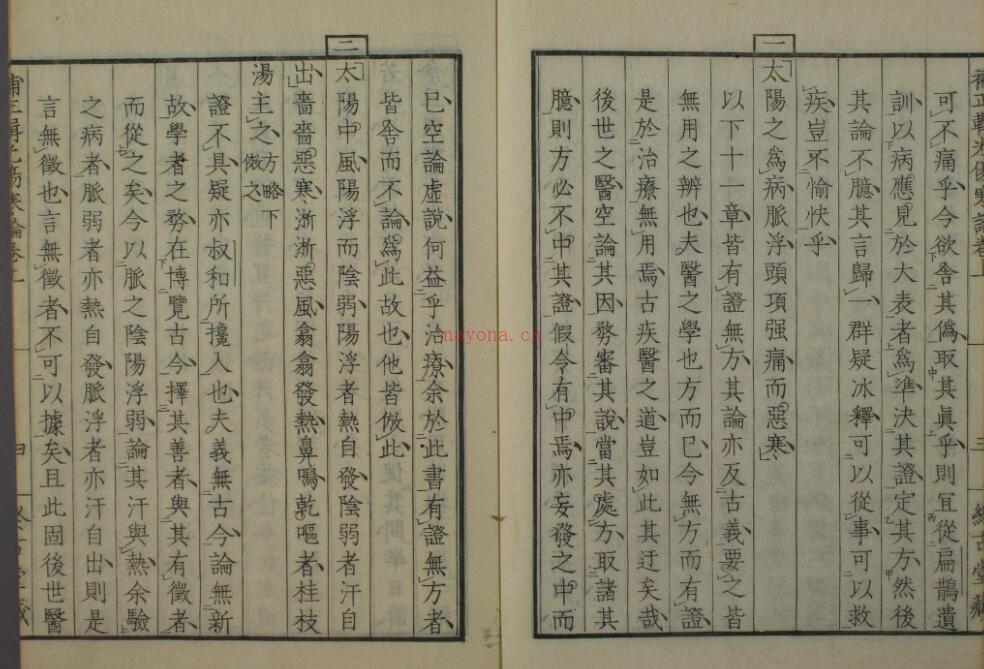 一
可不痛乎今欲舍其僞取其眞乎則宜從扁鵲遺
訓以病應見於大表者爲準決其證定其方然後
其論不臆其言歸一群疑冰釋可以從事可以救
疾豈不愉快乎
太陽之爲病脈浮頭項强痛而惡寒
以下十一章皆有證無方其論亦反古義要之皆
無用之辨也夫醫之學也方而已今無方而有證
是於治療無用焉古疾醫之道豈如此其迂矣哉
後世之醫空論其因務審其說當其處方取諸其
臆則方必不中其證假令有中焉亦妄發之中而
二
已空論虛說何益乎治療余於此書有證無方者
皆舍而不論爲此故也他皆倣此
太陽中風陽浮而陰弱陽浮者熱自發陰弱者汗自
出嗇嗇惡寒淅淅惡風翕翕發熱鼻鳴乾嘔者桂枝
湯主之方略下倣之
證不具疑亦叔和所攙入也夫義無古今論無新
故學者之務在博覽古今擇其善者與其有徵者
而從之矣今以脈之陰陽浮弱論其汗與熱余驗
之病者脈弱者亦熱自發脈浮者亦汗自出則是
言無徵也言無徵者不可以據矣且此固後世醫
四
三
nayona.cn